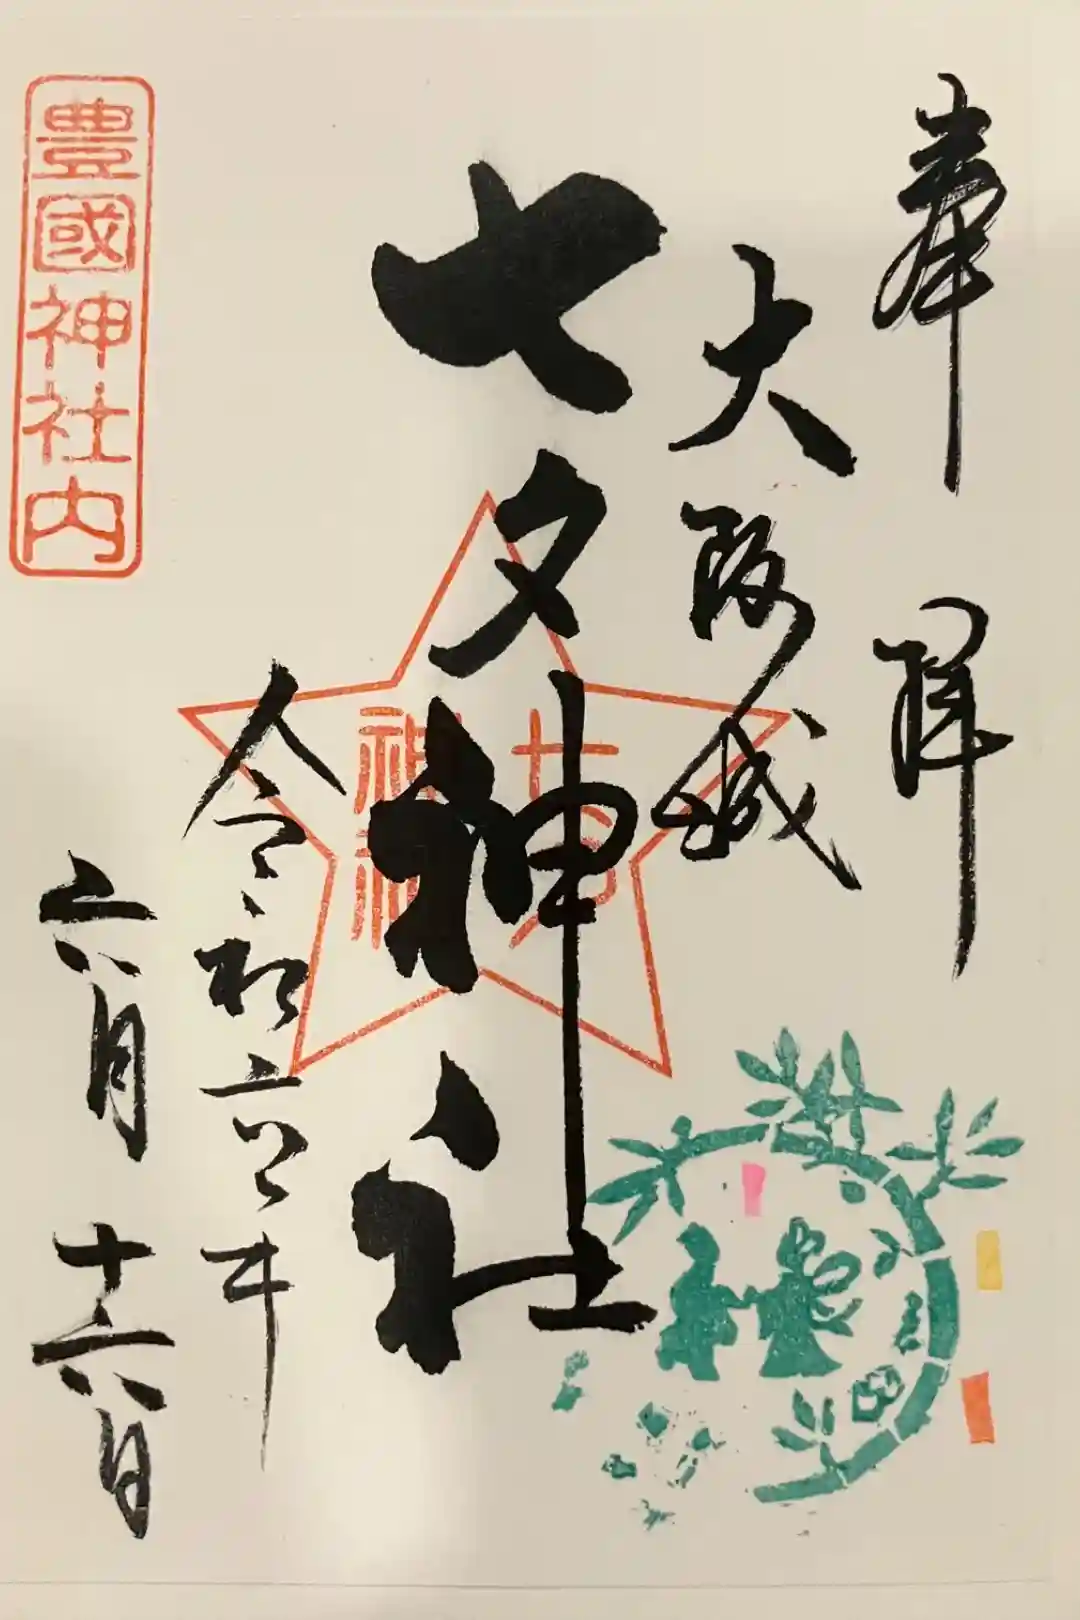 奉拝
大阪城
七夕神社
七夕
神社
令和六年
六月十六日
豊國神社内